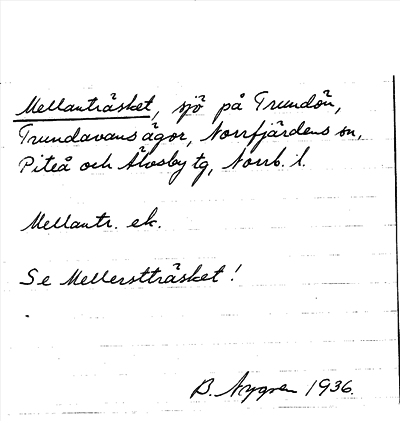 Mellanträsket, sjö på Trundön,
Trundavans ägor, Norrfjärdens sn,
Piteå och Älvsby tg, Norrb. l.
Mellantr. ek.
Se Mellerstträsket!
B. Nygren 1936.